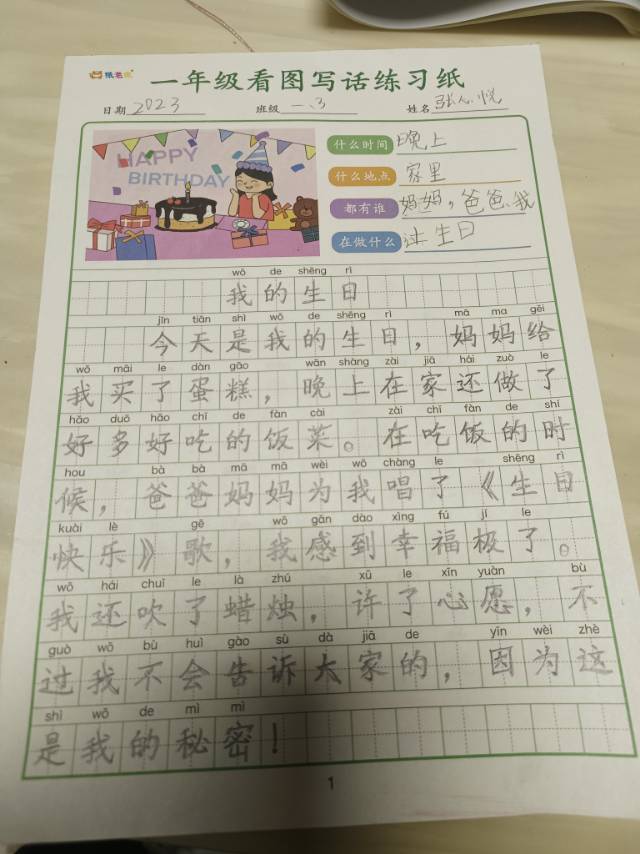 纸老虎
一年级看图写话练习纸
日期 2023 班级 一、3 姓名 张心悦
HAPPY
BIRTHDAY
什么时间 晚上
什么地点 家里
都有谁 妈妈,爸爸、我
在做什么 过生日
wǒ de shēng rì
我的生日
jīn tiān shì wǒ de shēng rì mā ma gěi
今天是我的生日,妈妈给
wǒ mǎi le dàn gāo wǎn shàng zài jiā hái zuò le
我买了蛋糕,晚上在家还做了
hǎo duō hǎo chī de fàn cài zài chī fàn de shí
好多好吃的饭菜。在吃饭的时
hou bà bà mā mā wèi wǒ chàng le shēng rì
候,爸爸妈妈为我唱了《生日
kuài lè gē wǒ gǎn dào xìng fú jí le
快乐》歌,我感到幸福极了。
wǒ hái chuī le là zhú xǔ le xīn yuàn bù
我还吹了蜡烛,许了心愿,不
guò wǒ bù huì gào sù dà jiā de yīn wèi zhè
过我不会告诉大家的,因为这
shì wǒ de mì mì
是我的秘密!
1